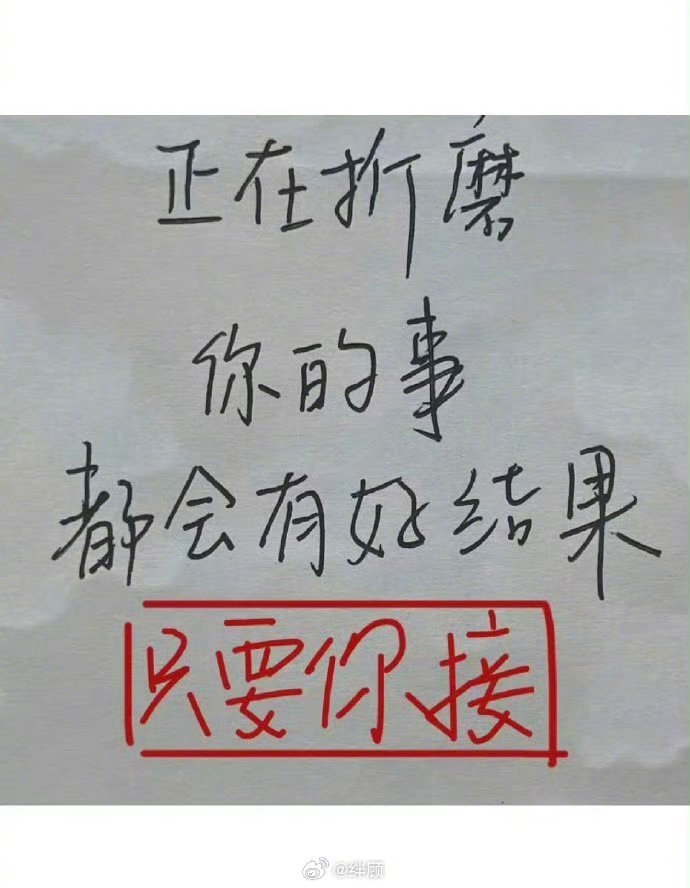 正在折磨
你的事
都会有好结果
只要你接
@绊顾